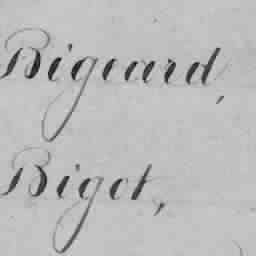 Bigeard,
Bigot,